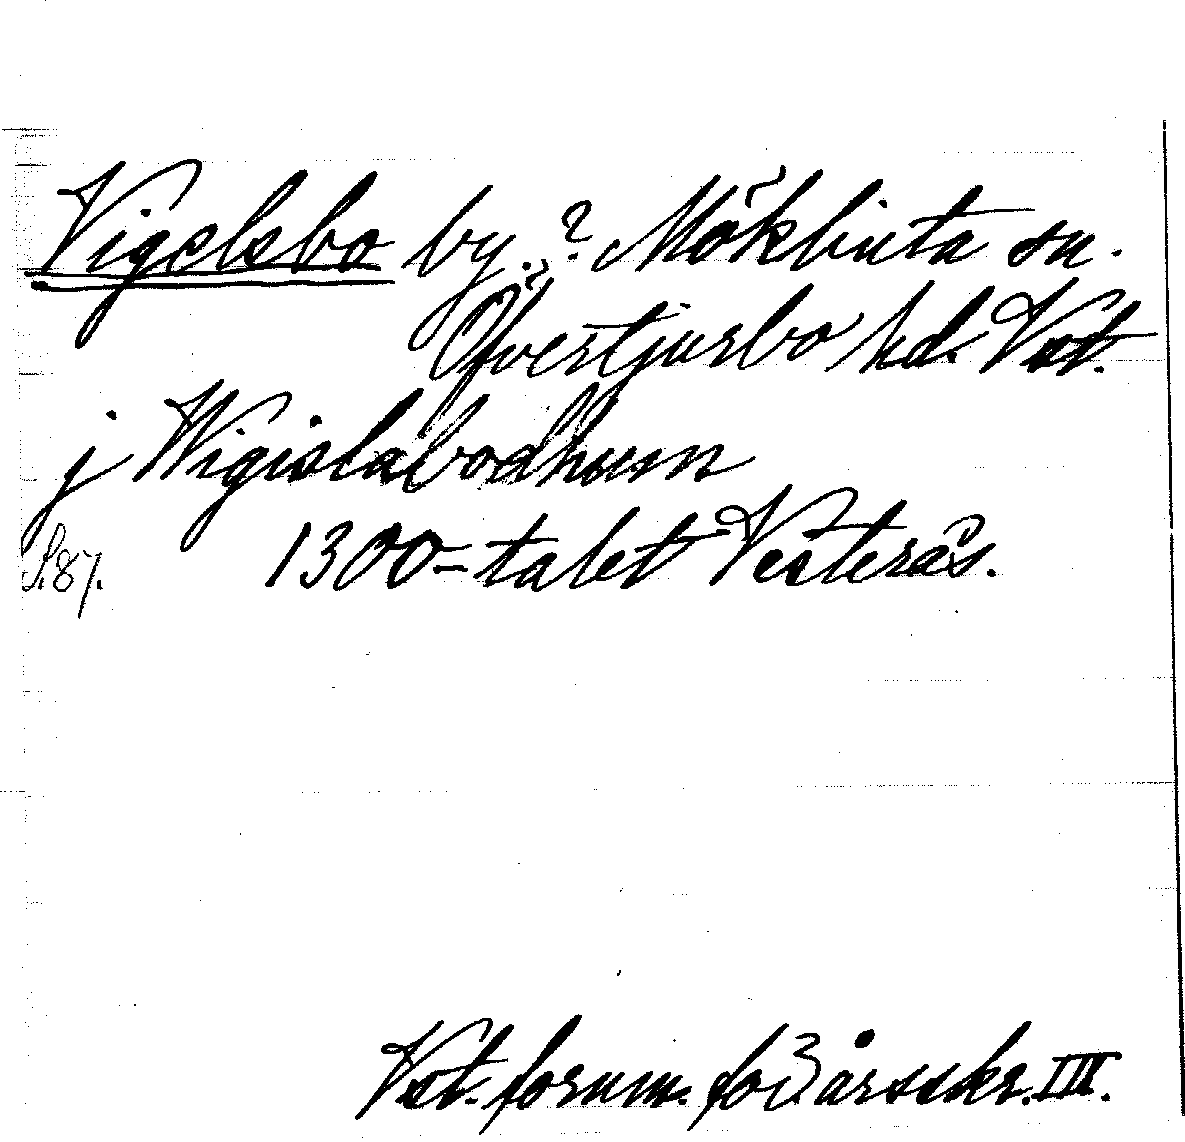 Vigelsbo by.? Möklinta sn.
Öfvertjurbo hd. Vst.
j Wigislabodhum
S. 87. 1300-talet Vesterås.
Vst. fornm. för årsskr. III.